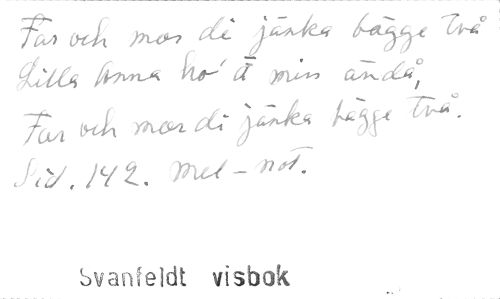 Far och mor di jänka bägge två
Lilla Anna ho' ä min ändå,
Far och mor di jänka bägge två.
Sid. 142. Mel-not.
Svanfeldt visbok